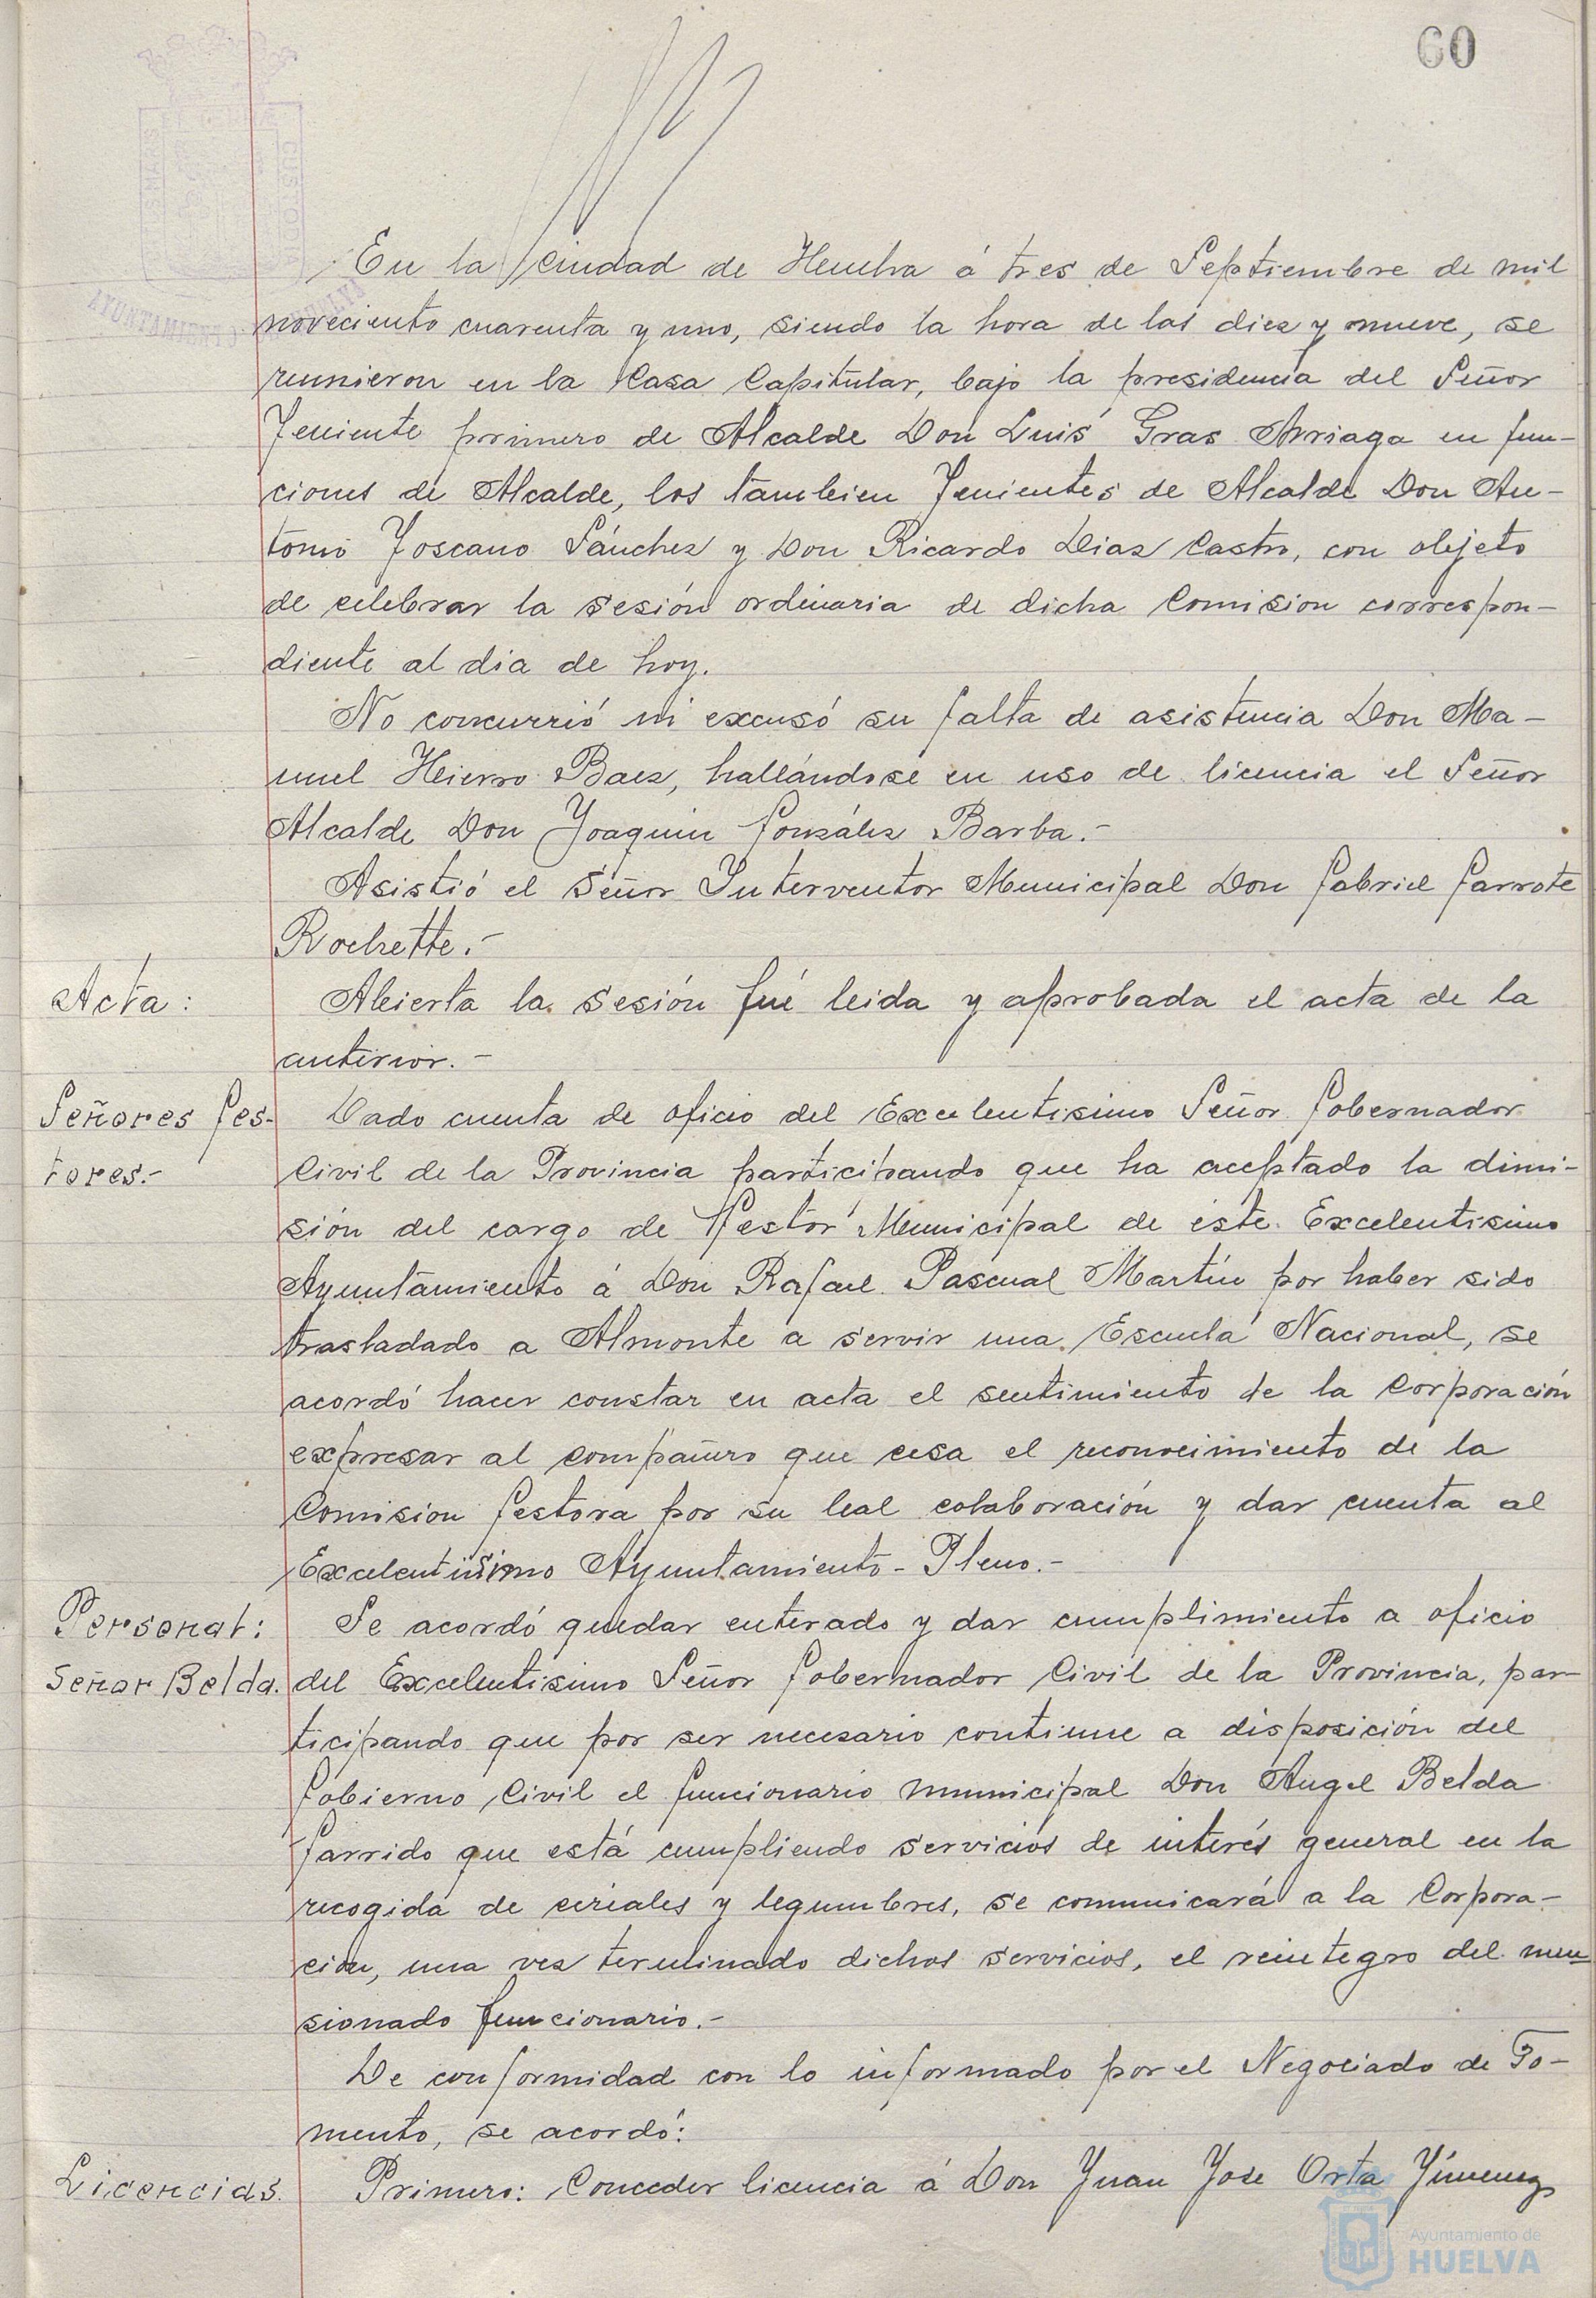 60
En la Ciudad de Huelva á tres de Septiembre de mil
noveciento cuarenta y uno, siendo la hora de las diez y nueve, se
reunieron en la Casa Capitular, bajo la presidencia del Señor
Teniente primero de Alcalde Don Luis Gras Arriaga en fun-
ciones de Alcalde, los tambien Tenientes de Alcalde Don An-
tonio Toscano Sánchez y Don Ricardo Diaz Castro, con objeto
de celebrar la sesión ordinaria de dicha Comision correspon-
diente al dia de hoy.
No concurrió ni excusó su falta de asistencia Don Ma-
nuel Hierro Baez, hallándose en uso de licencia el Señor
Alcalde Don Joaquin González Barba.-
Asistió el Señor Interventor Municipal Don Gabriel Garrote
Rochette.-
Acta: Abierta la sesión fué leida y aprobada el acta de la
anterior.-
Señores Ges- Dado cuenta de oficio del Excelentisimo Señor Gobernador
tores.- Civil de la Provincia participando que ha aceptado la dimi-
sión del cargo de Gestor Municipal de éste Excelentisimo
Ayuntamiento á Don Rafael Pascual Martín por haber sido
trasladado a Almonte a servir una Escuela Nacional, se
acordó hacer constar en acta el sentimiento de la Corporación
expresar al compañero que cesa el reconocimiento de la
Comision Gestora por su leal colaboración y dar cuenta al
Excelentisimo Ayuntamiento-Pleno.-
Personal: Se acordó quedar enterado y dar cumplimiento a oficio
Señor Belda. del Excelentisimo Señor Gobernador Civil de la Provincia, par-
ticipando que por ser necesario continue a disposición del
Gobierno Civil el funcionario municipal Don Angel Belda
Garrido que está cumpliendo servicios de interés general en la
recogida de cereales y legumbres, se comunicará a la Corpora-
cion, una vez terminado dichos servicios, el reintegro del men-
sionado funcionario.-
De conformidad con lo informado por el Negociado de Fo-
mento, se acordó:
Licencias. Primero: Conceder licencia á Don Juan Jose Orta Jimenez
Ayuntamiento de
HUELVA